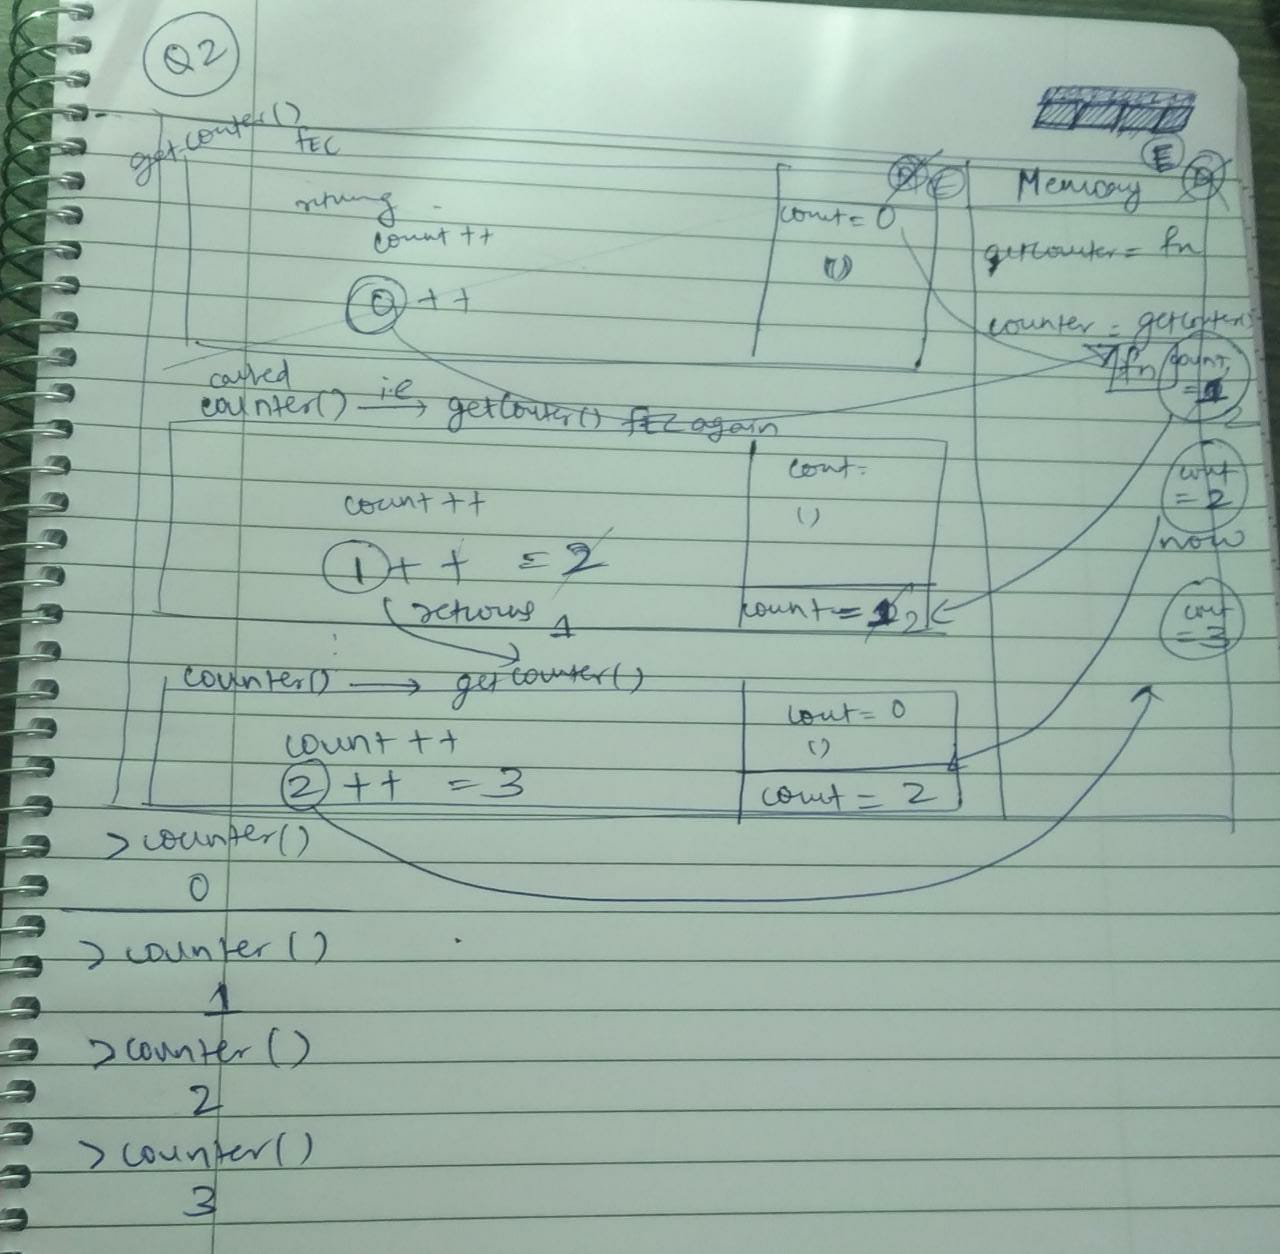 Q2
getcouter()
fEC
E
Memory
E
count = 0
count ++
()
getcouter = fn
0 ++
counter = getcouter()
fn
count
= 1
2
called
counter() i.e → getcouter() fEC again
cout =
()
count ++
cout
= 2
now
1 + + = 2
returns
1
count = 1 2
cout
= 3
counter() → getcounter()
cout = 0
()
count ++
2 ++ = 3
cout = 2
> counter()
0
> counter()
1
> counter()
2
> counter()
3